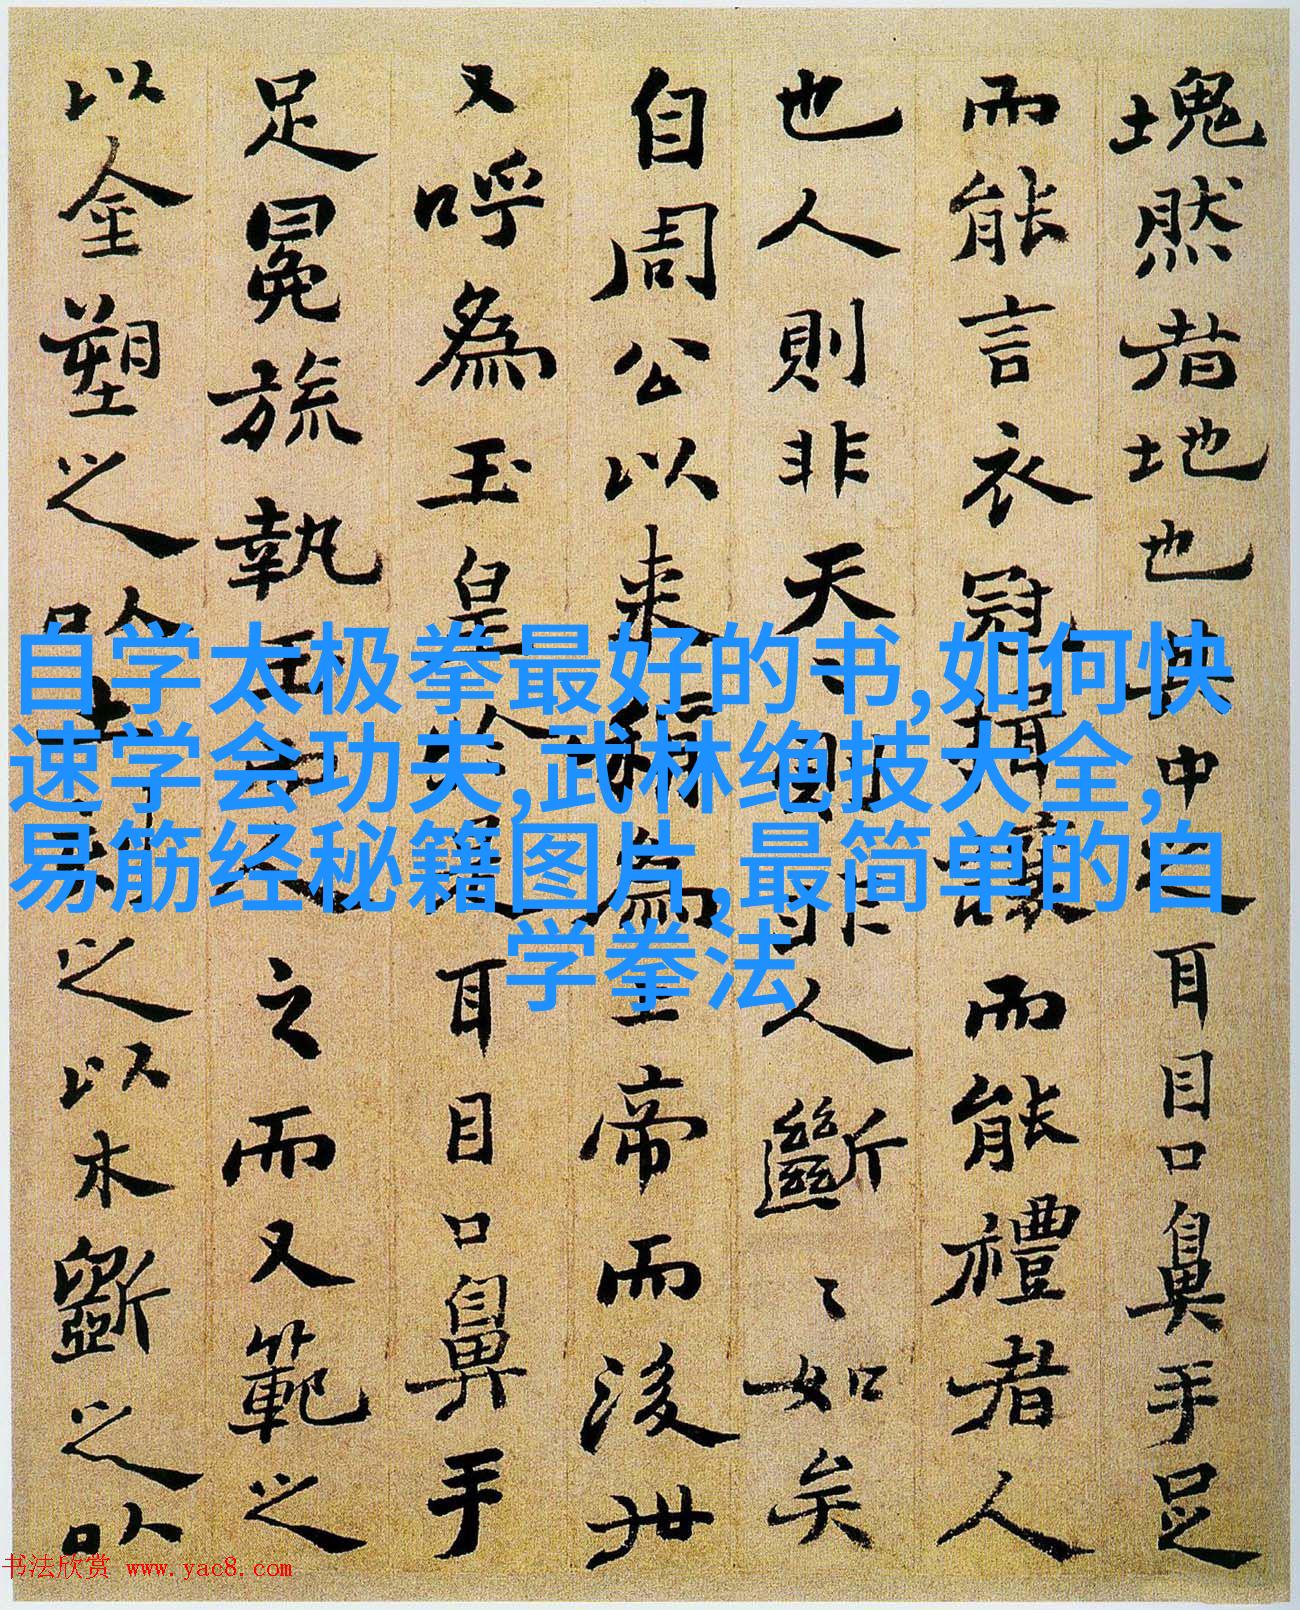 塊然者地也其中之耳目口鼻手足
而能言衣冠揖讓而能禮者人
也人則非天〻則非人斷〻如矣
自周公以来稱為上帝而後世
又呼為玉皇於是耳目口鼻手
足冕旒執玉而人之而又範之
以金塑之以土刻之以木斲之以
自学太极拳最好的书,如何快
速学会功夫,武林绝技大全,
易筋经秘籍图片,最简单的自
学拳法
书法欣赏 www.yac8.com